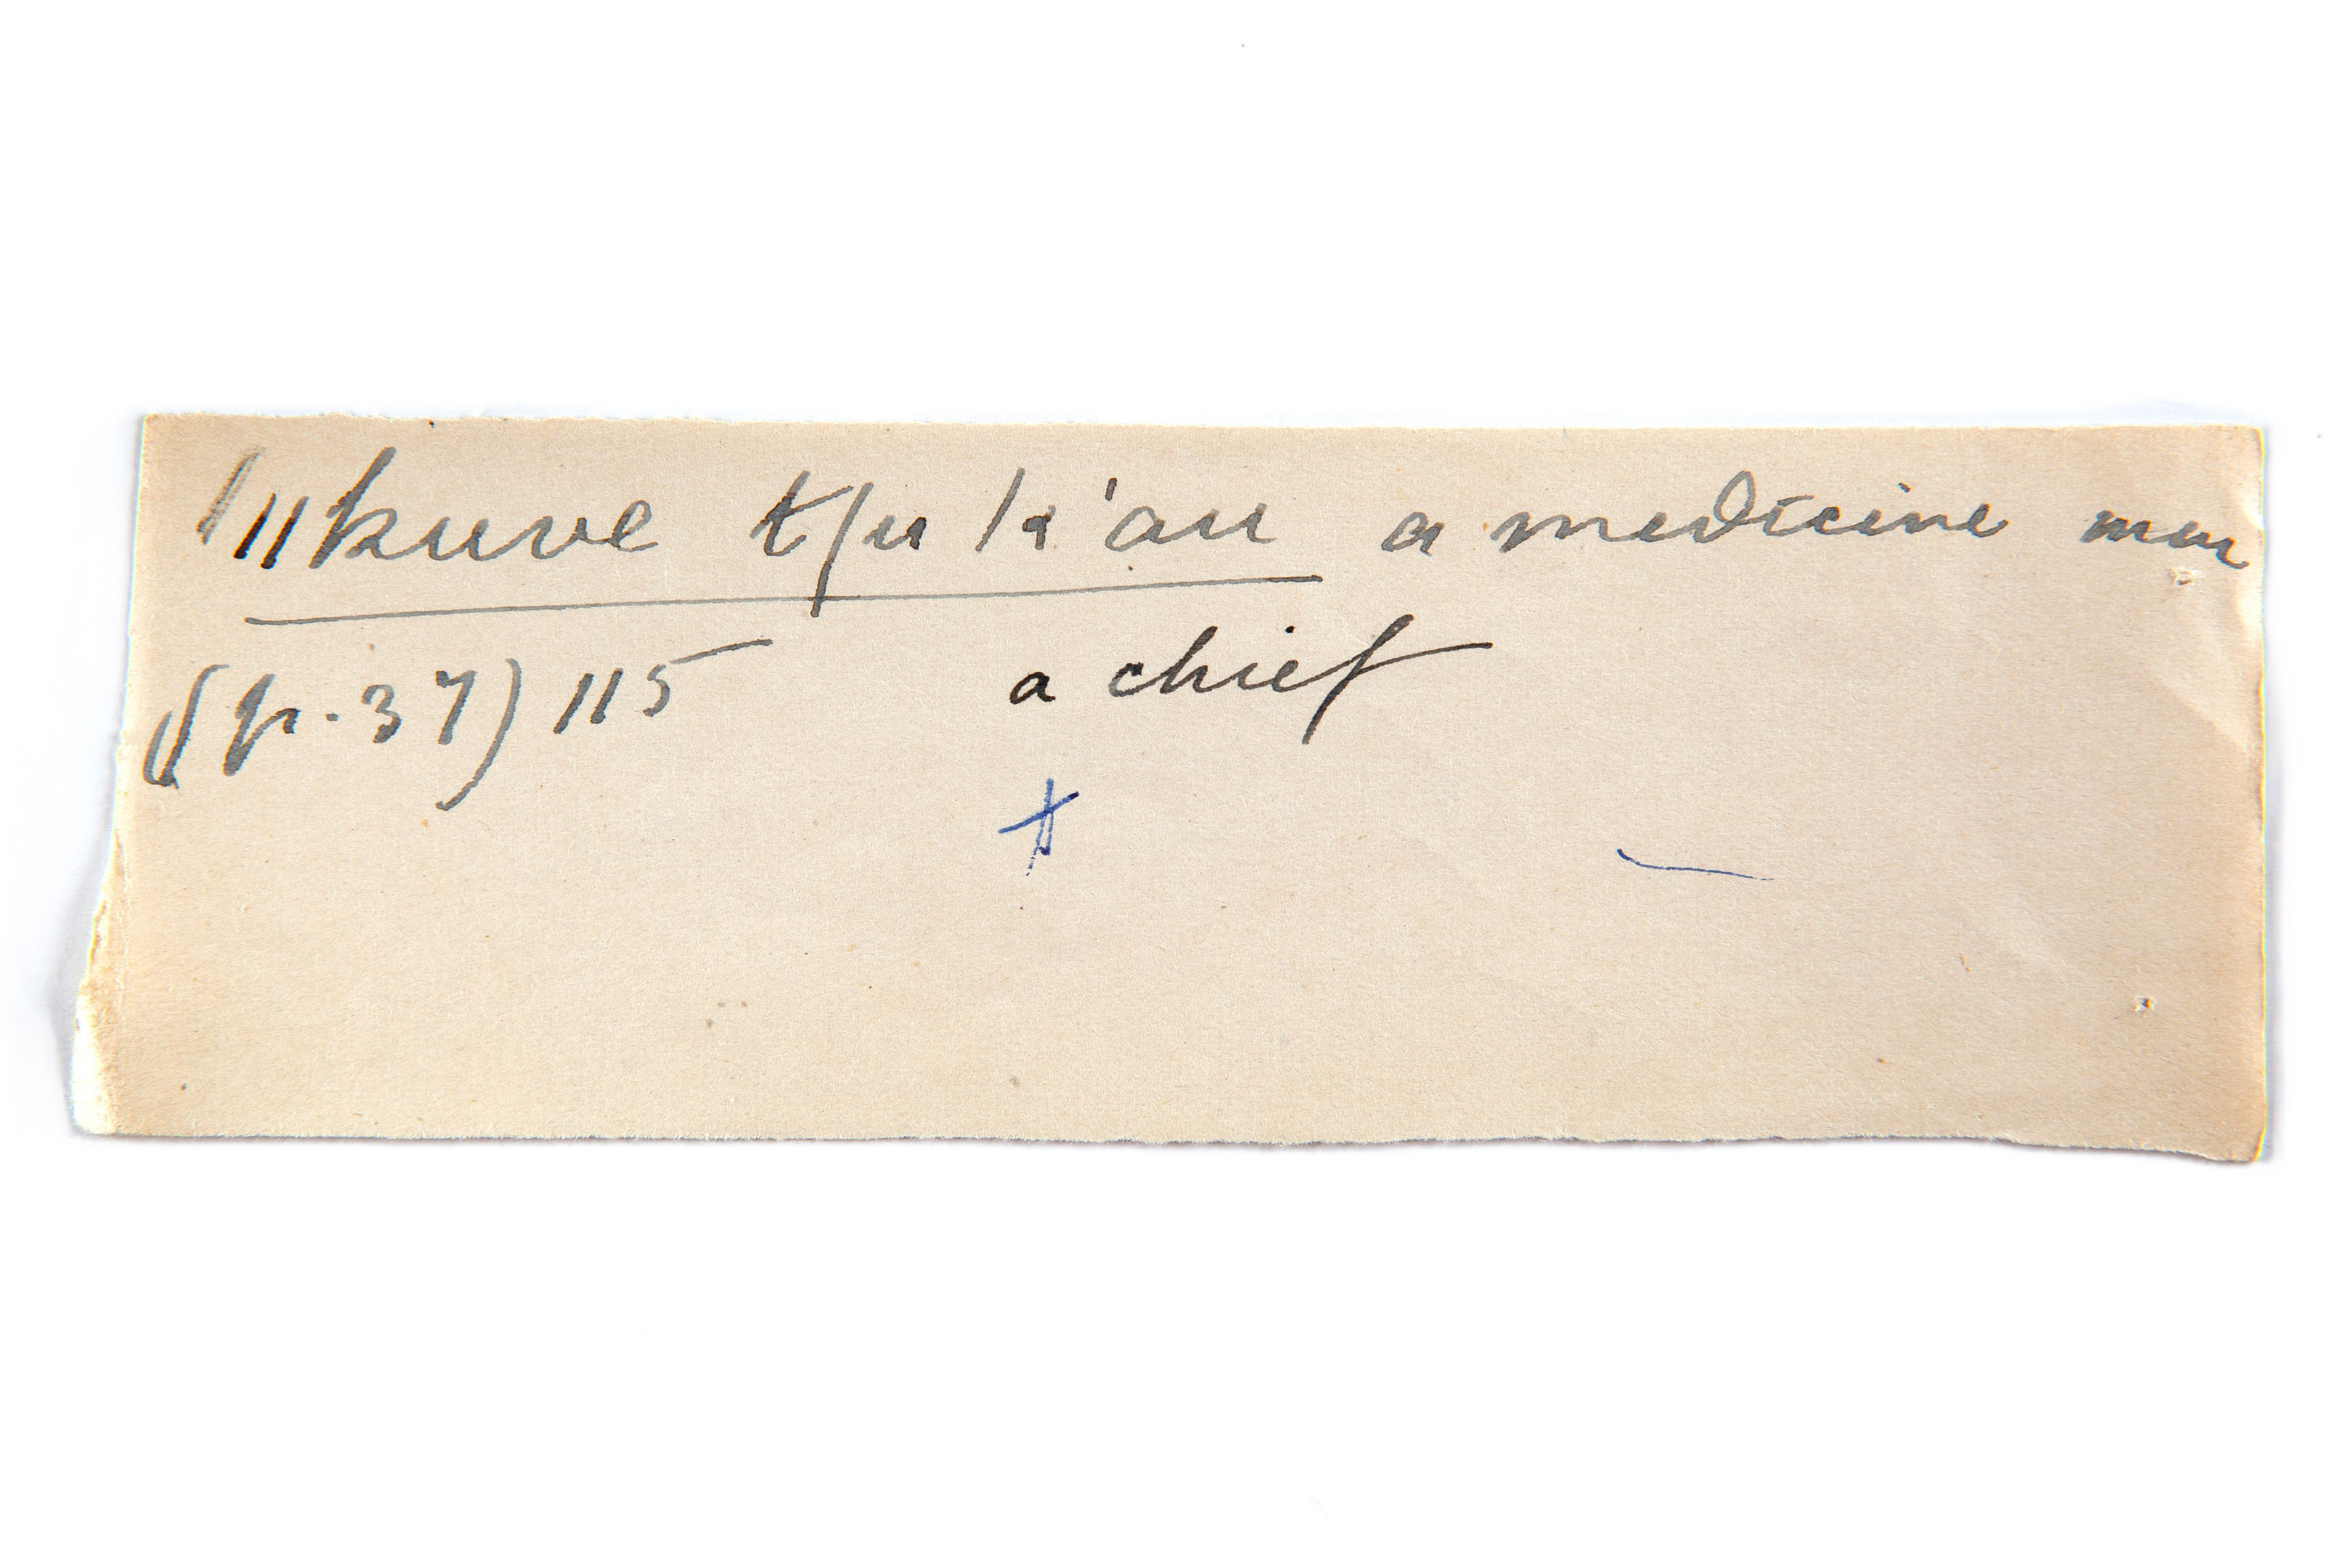 /ǁkuve tʃu /k'au a medicine man
(p. 37) 115 a chief
+ —